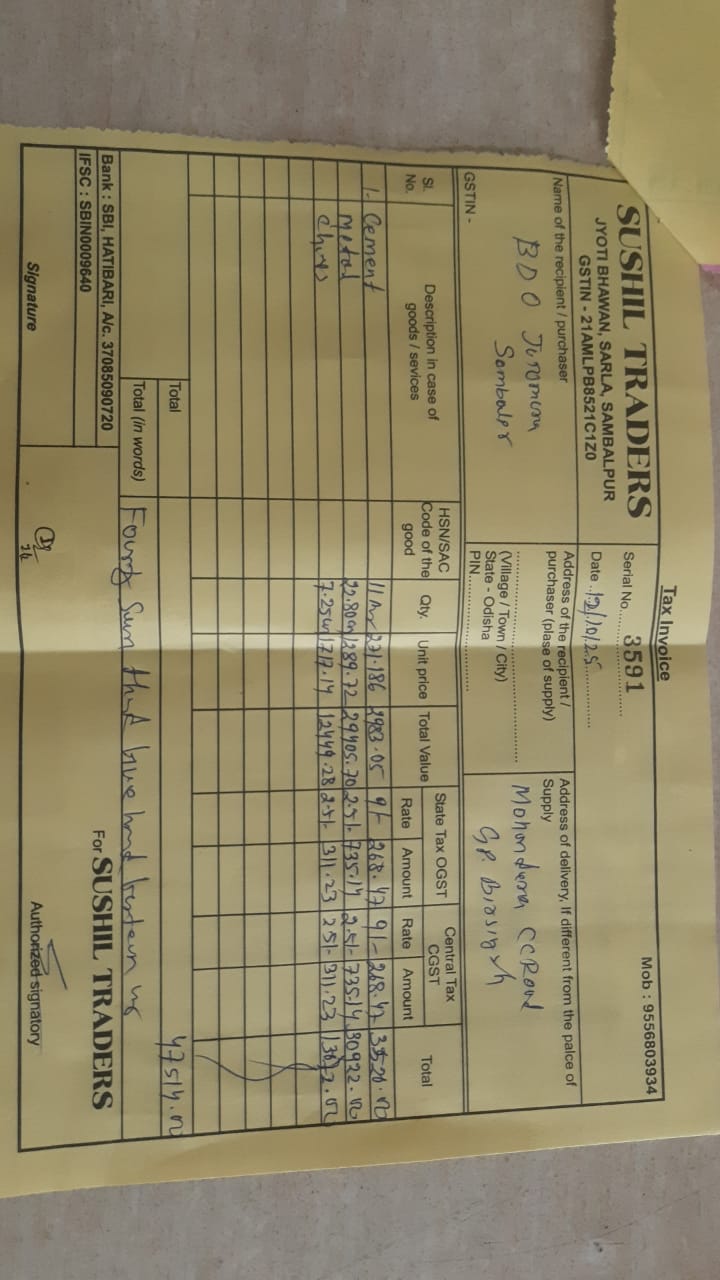 Tax Invoice
Mob : 9556803934
SUSHIL TRADERS
JYOTI BHAWAN, SARLA, SAMBALPUR
GSTIN - 21AMLPB8521C1Z0
Serial No. 3591
Date 12/10/25
Name of the recipient / purchaser
BDO
Address of the recipient / purchaser (plase of supply)
(Village / Town / City)
State - Odisha
PIN
Address of delivery, If different from the palce of Supply
CC Road
GP.
GSTIN -
Sl. No. Description in case of goods / sevices HSN/SAC Code of the good Qty. Unit price Total Value State Tax OGST Rate Amount Central Tax CGST Rate Amount Total
1. Cement 271.186 2983.05 9/- 268.47 9/- 268.47
Metal 22.80 1289.72 29405.70 2.5/- 735.14 2.5/- 735.14 30922.00
Chips 7.25 1717.14 12449.28 2.5/- 311.23 2.5/- 311.23
Total 47514.00
Total (in words)
Bank : SBI, HATIBARI, A/c. 37085090720
IFSC : SBIN0009640
For SUSHIL TRADERS
Signature
Authorized signatory